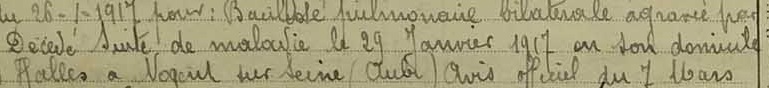 du 26-1-1917 pour: Bacillose pulmonaire bilatérale agravée par
Décédé suite de maladie le 29 Janvier 1917 en son domicile
Halles a Nogent sur Seine (Aube) Avis officiel du 7 Mars